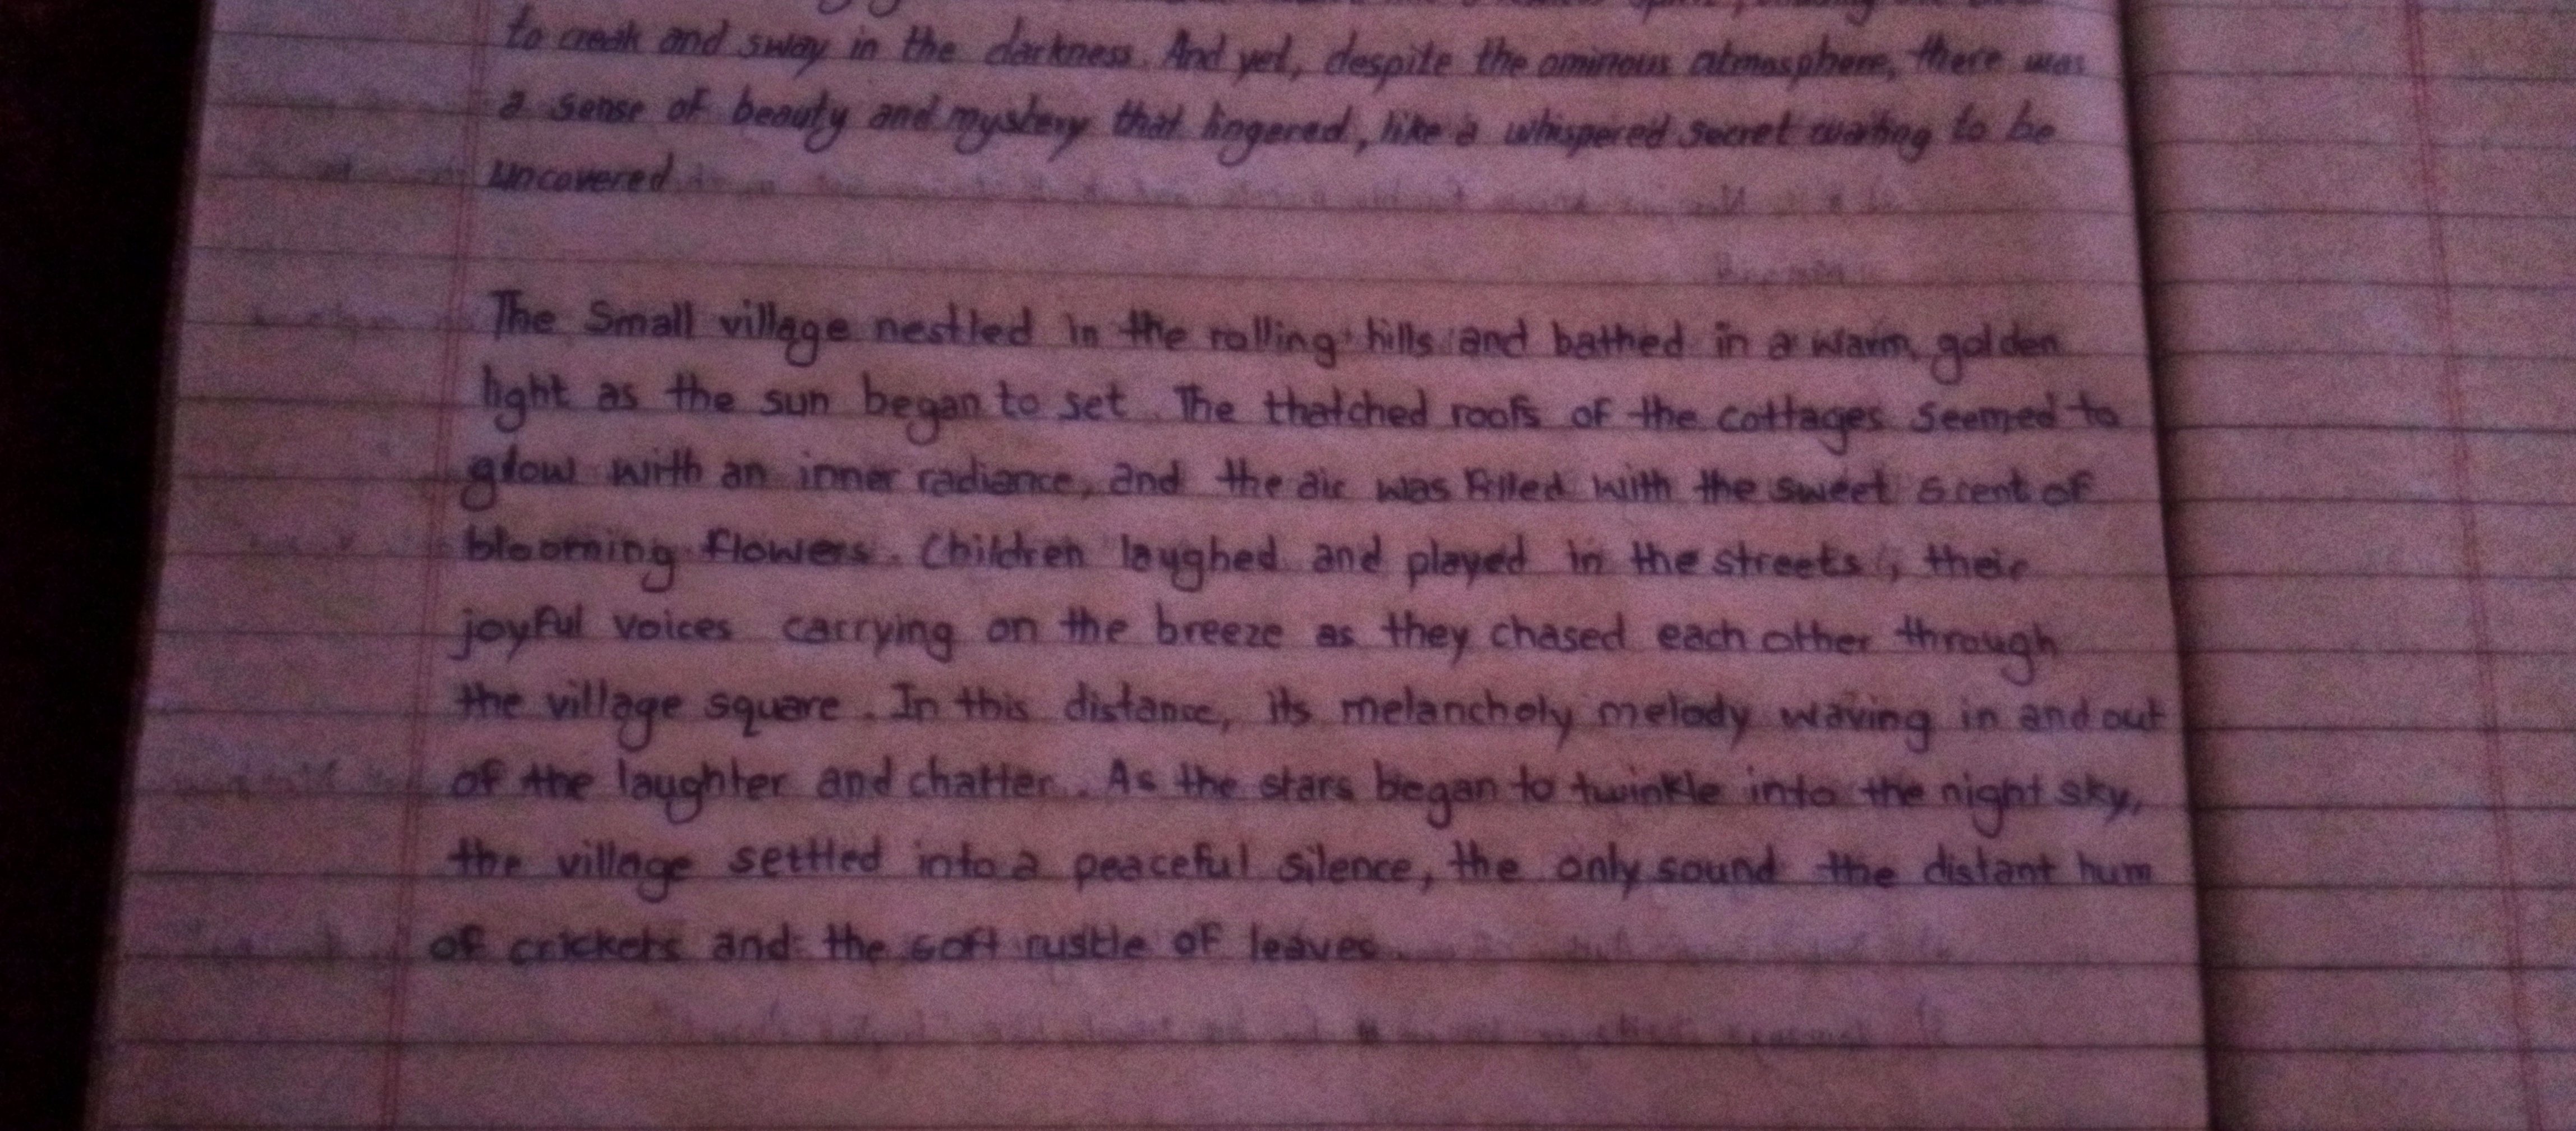 to creak and sway in the darkness. And yet, despite the ominous atmosphere, there was
a sense of beauty and mystery that lingered, like a whispered secret waiting to be
uncovered
The Small village nestled in the rolling hills and bathed in a warm, golden
light as the sun began to set. The thatched roofs of the cottages seemed to
glow with an inner radiance, and the air was filled with the sweet scent of
blooming flowers. Children laughed and played in the streets, their
joyful voices carrying on the breeze as they chased each other through
the village square. In this distance, its melancholy melody waving in and out
of the laughter and chatter. As the stars began to twinkle into the night sky,
the village settled into a peaceful silence, the only sound the distant hum
of crickets and the soft rustle of leaves.